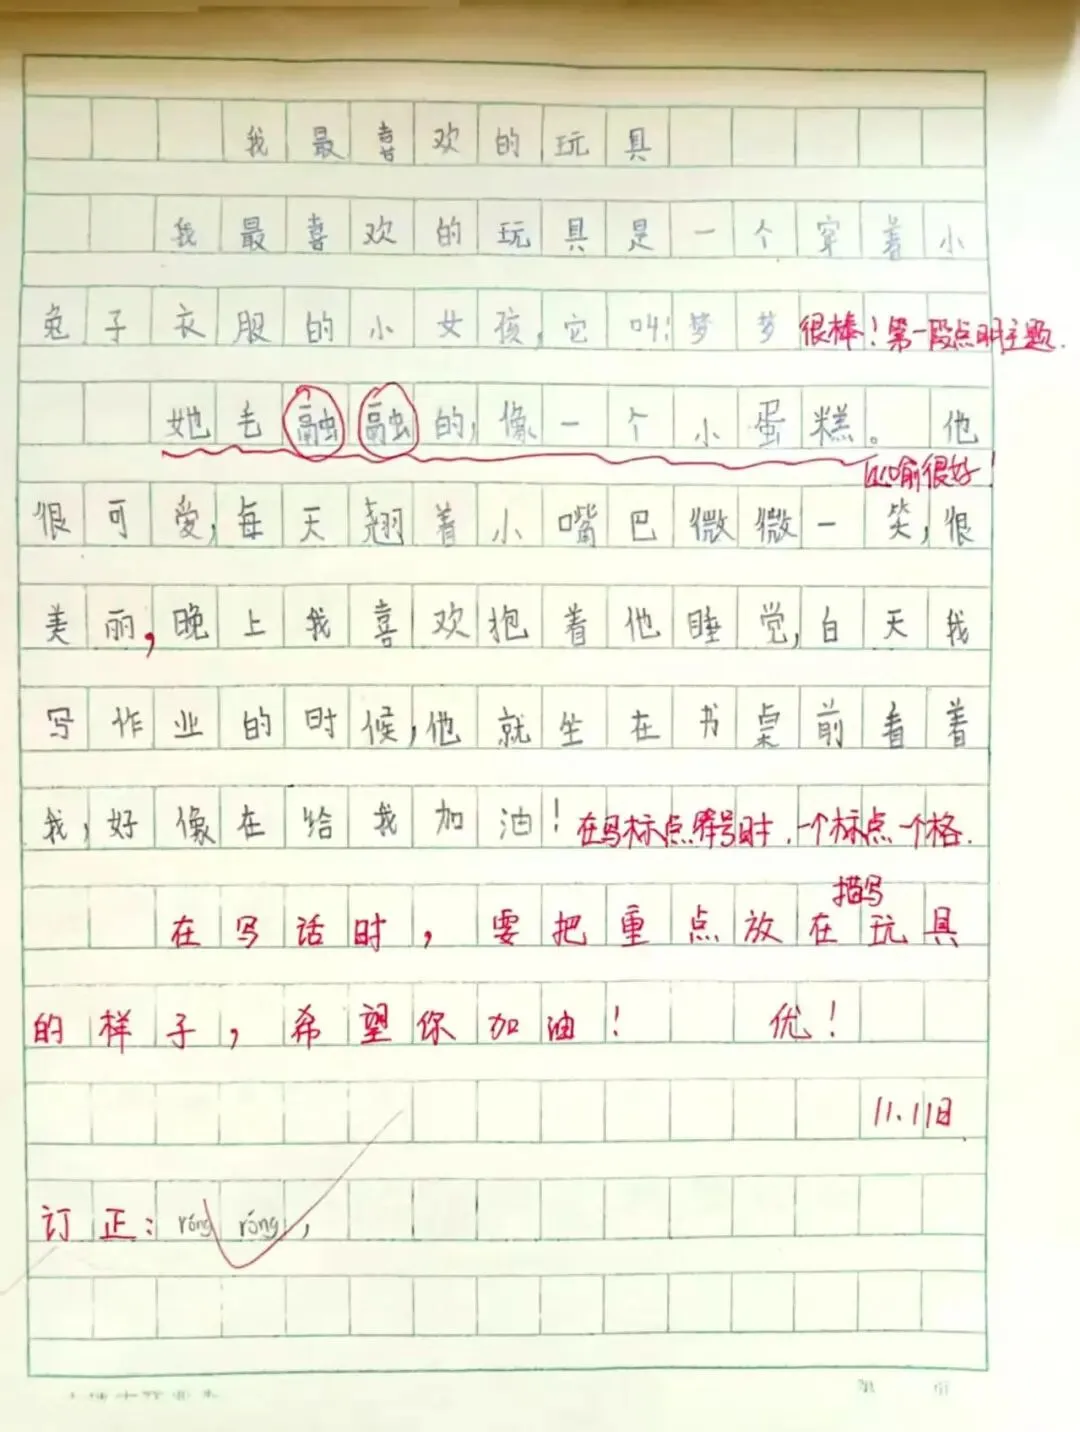 我最喜欢的玩具
我最喜欢的玩具是一个穿着小
兔子衣服的小女孩,它叫:梦梦 很棒！第一段点明主题.
她毛融融的,像一个小蛋糕。他
比喻很好！
很可爱,每天翘着小嘴巴微微一笑,很
美丽,晚上我喜欢抱着他睡觉,白天我
写作业的时候,他就坐在书桌前看着
我,好像在给我加油！ 在写标点符号时.一个标点一个格.
描写
在写话时，要把重点放在玩具
的样子，希望你加油！ 优！
11.11日
订正：róng róng,
第 页